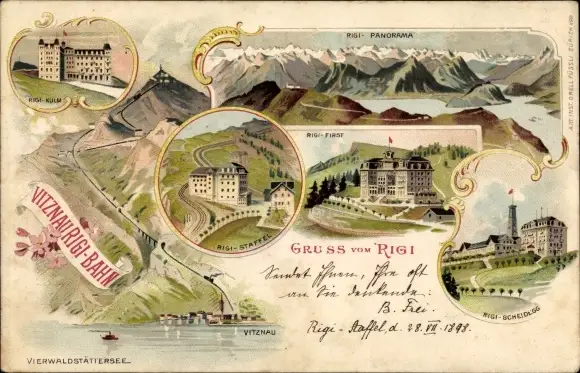 RIGI - PANORAMA
RIGI-KULM
RIGI-FIRST
RIGI-STAFFEL
VITZNAU-RIGI-BAHN
GRUSS VOM RIGI
RIGI-SCHEIDEGG
Sendet Ihnen, Ihre oft
an Sie denkende:
B. Frei.
Rigi-Staffel d. 28. VII. 1898.
VITZNAU
VIERWALDSTÄTTERSEE
ART. INST. ORELL FÜSSLI, ZÜRICH